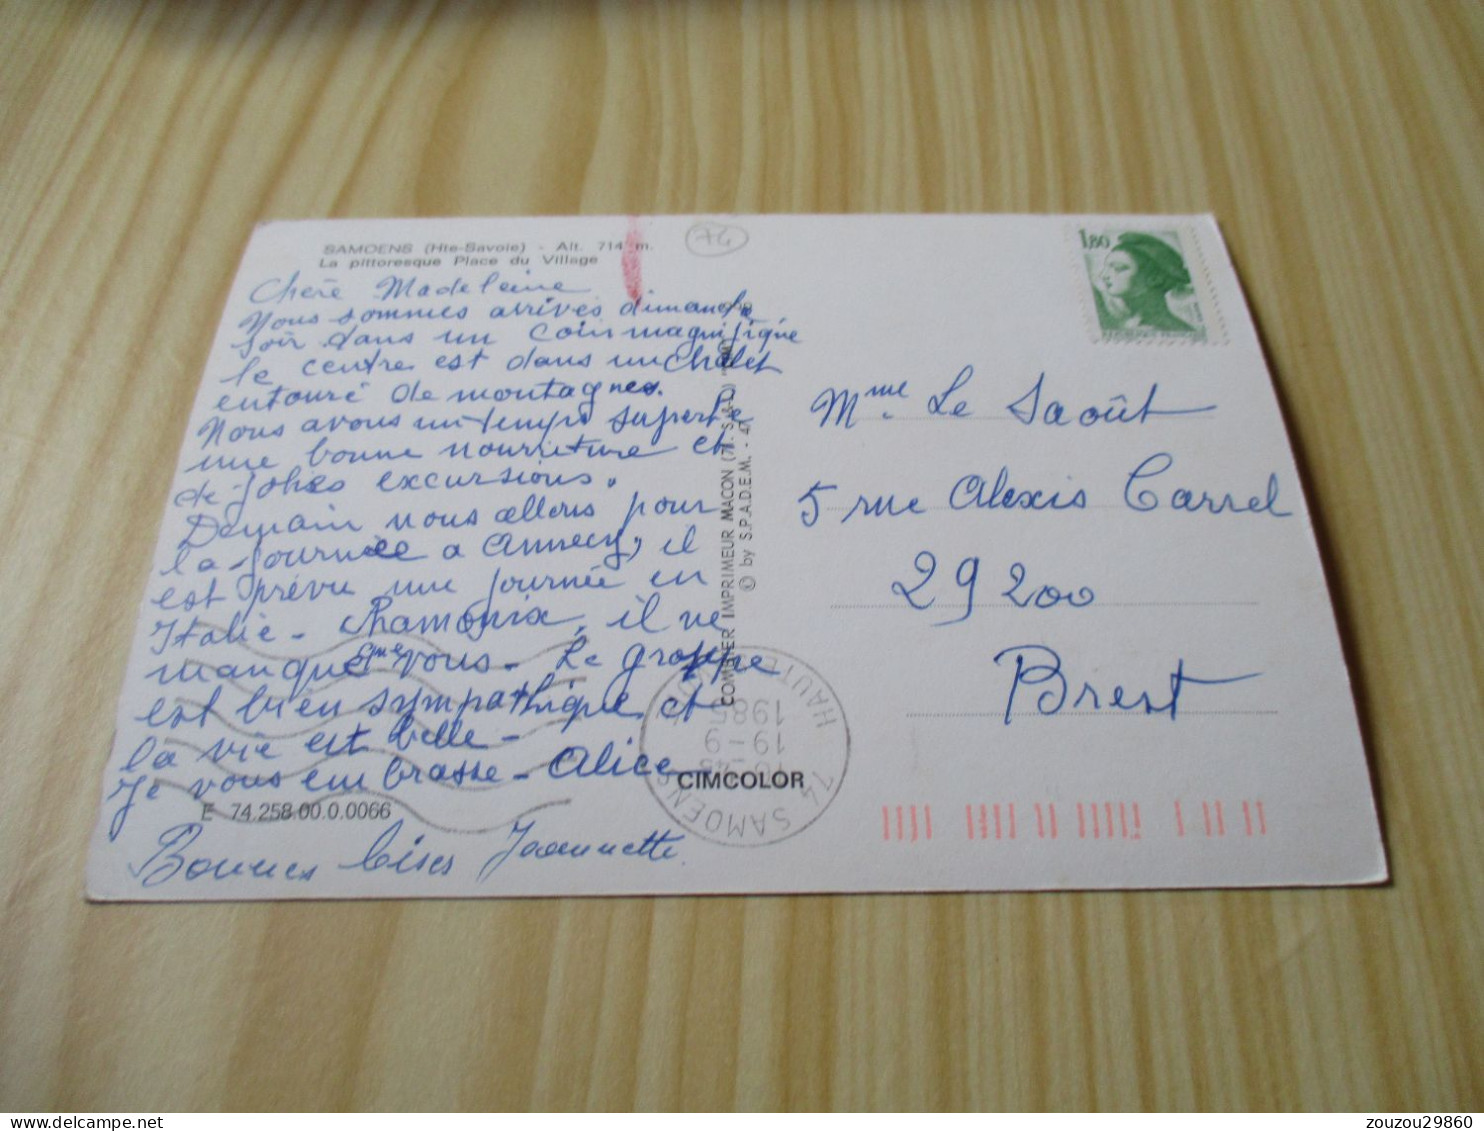 SAMOENS (Hte-Savoie) - Alt. 714 m.
La pittoresque Place du Village
74
1,80
Chère Madeleine
Nous sommes arrivés dimanche
soir dans un coin magnifique
le centre est dans un chalet
entouré de montagnes.
Nous avons un temps superbe
une bonne nourriture et
de jolies excursions.
Demain nous allons pour
la journée a Annecy, il
est prévu une journée en
Italie - Chamonix, il ne
manque que vous - Le groupe
est bien sympathique et
la vie est belle -
Je vous embrasse - Alice
E 74.258.00.0.0066
Bonnes bises Jeannette
COMBIER IMPRIMEUR MACON
© by S.P.A.D.E.M.
CIMCOLOR
74 SAMOENS
HAUTE SAVOIE
10-45
19-9
1985
Mme Le Saoût
5 rue Alexis Carrel
29200
Brest
zouzou29860